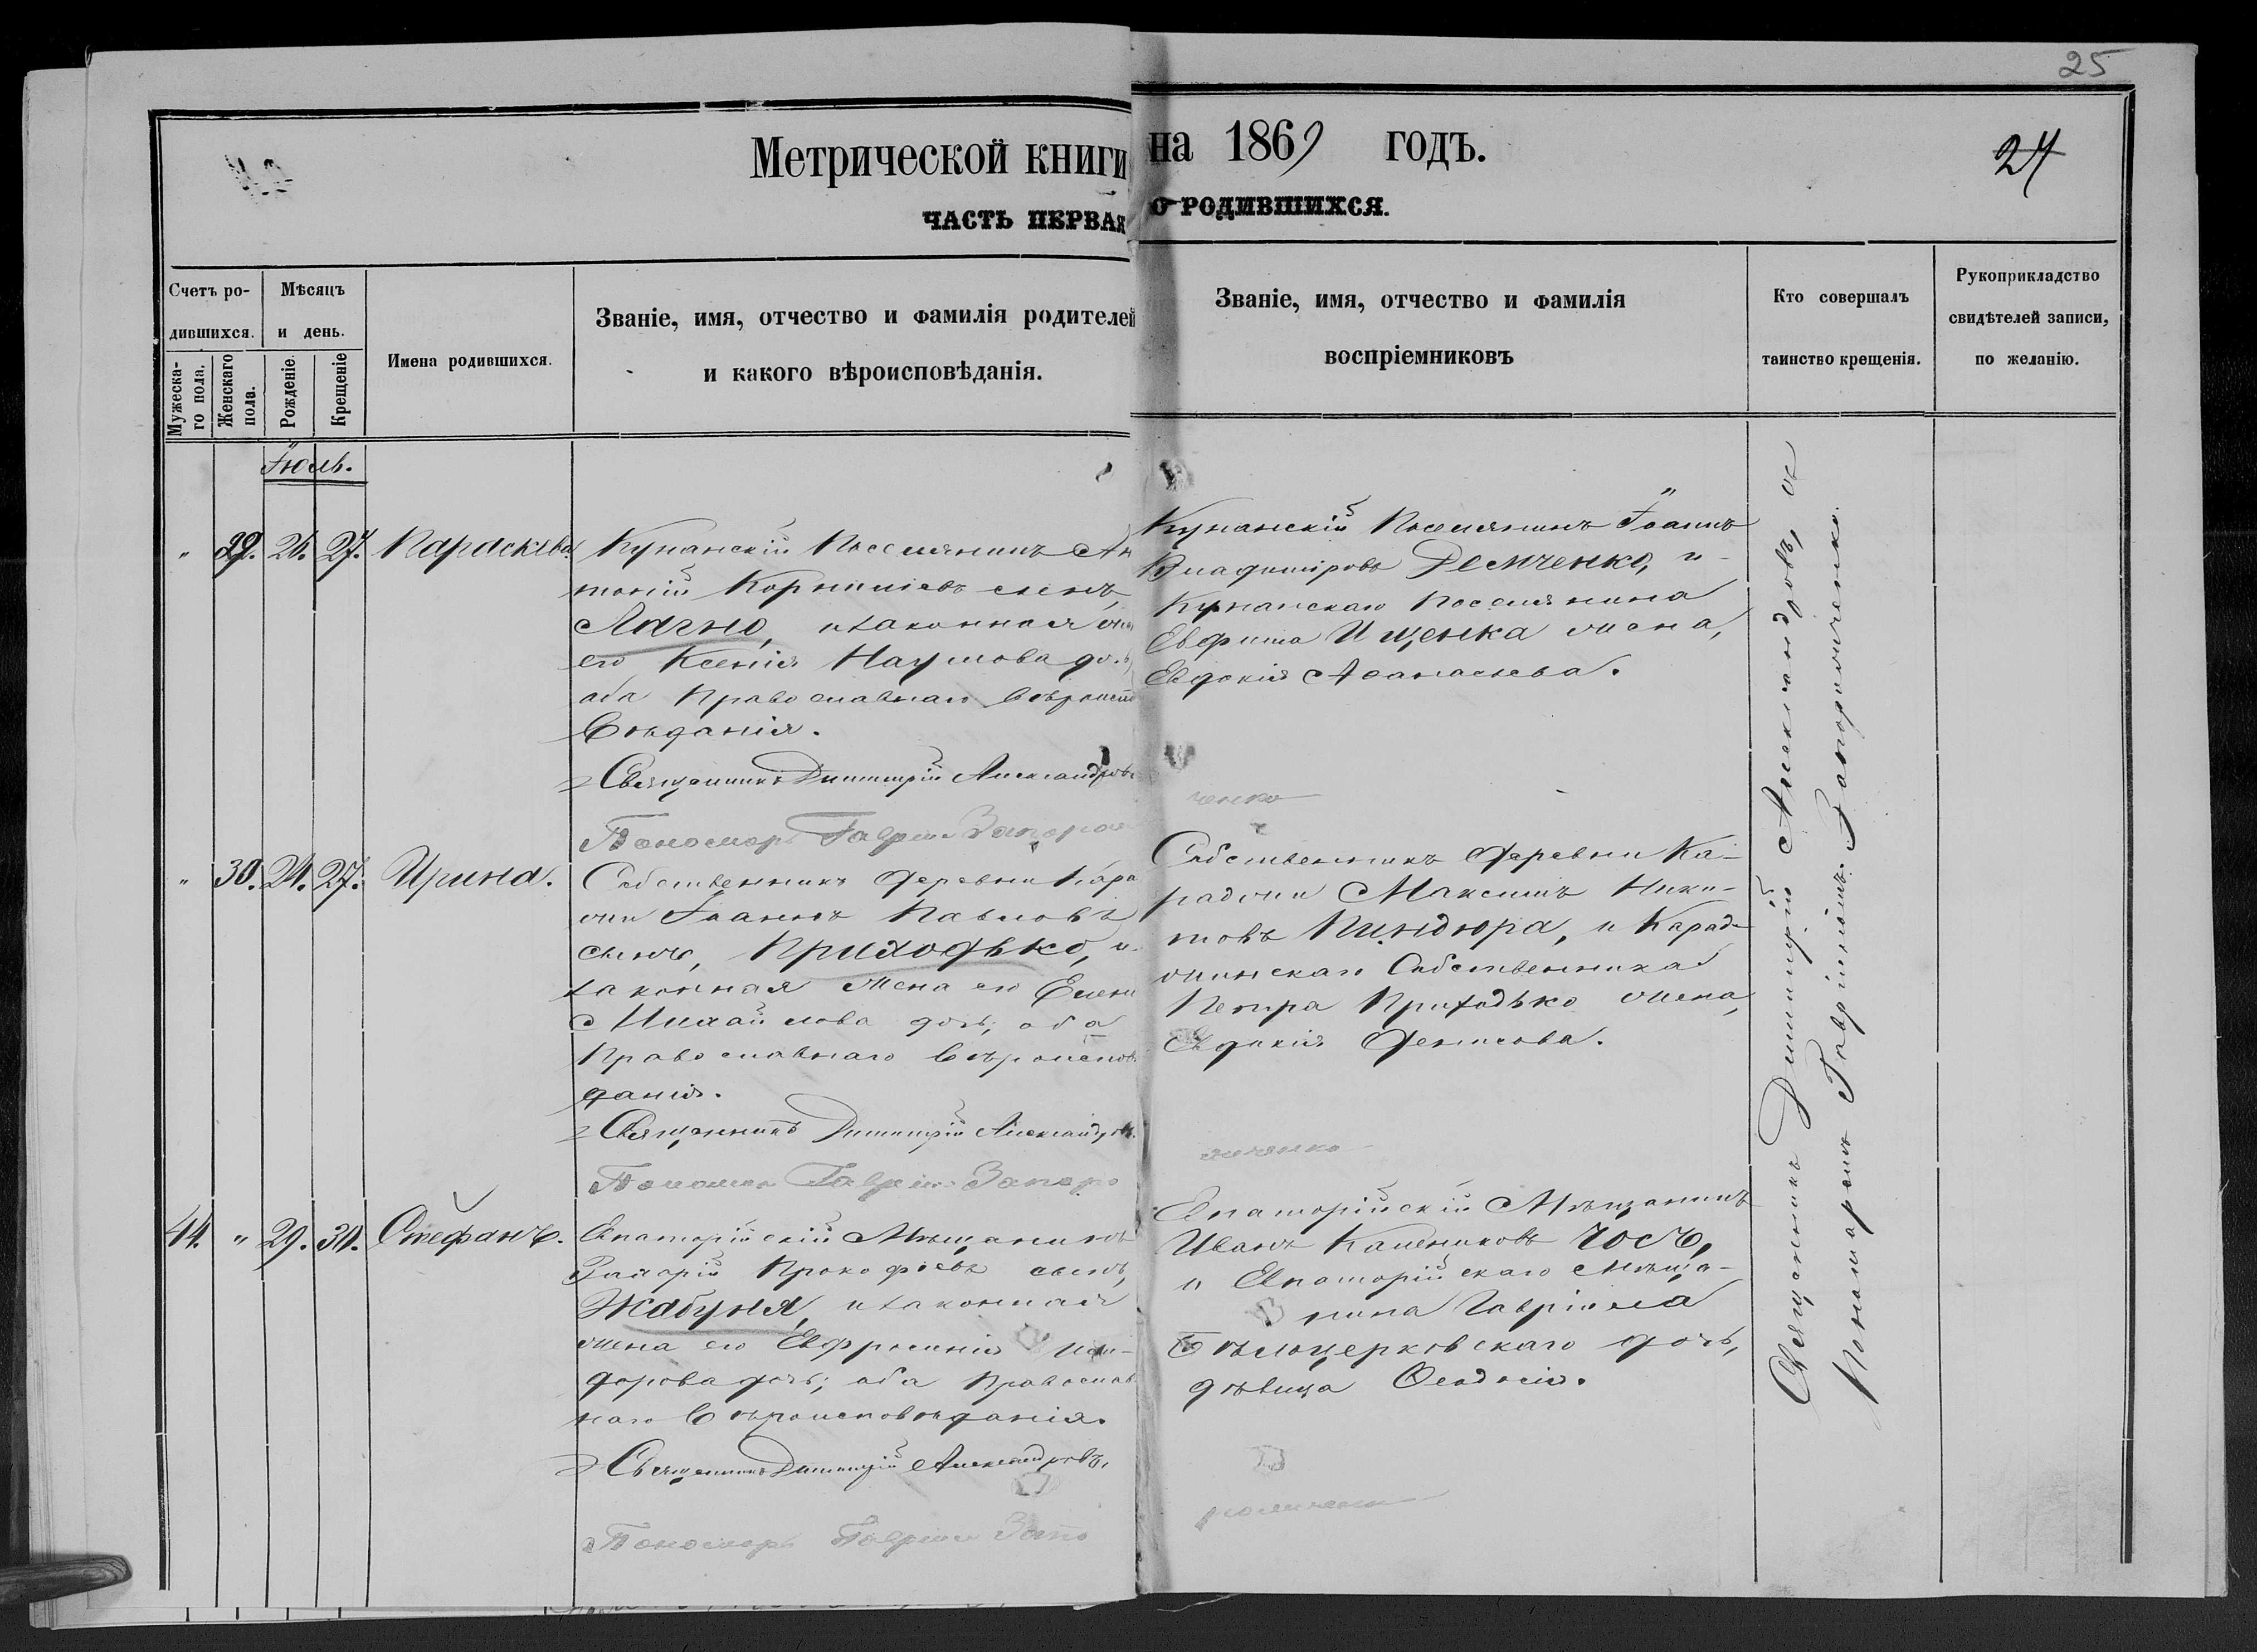 25
Метрической книги на 1869 годъ.
24
ЧАСТЬ ПЕРВАЯ О РОДИВШИХСЯ.
Счетъ родившихся.
Мужескаго пола.
Женскаго пола.
Мѣсяцъ и день.
Рожденіе.
Крещеніе
Имена родившихся.
Званіе, имя, отчество и фамилія родителей
и какого вѣроисповѣданія.
Званіе, имя, отчество и фамилія
воспріемниковъ
Кто совершалъ
таинство крещенія.
Рукоприкладство
свидѣтелей записи,
по желанію.
Іюль.
" 29. 26. 27. Параскева.
Кунанскій Поселянинъ Ан
тоній Корниліевъ сынъ,
Лагно, и законная жена
его Ксенія Наумова дочь,
оба Православнаго вѣроиспо
вѣданія.
Священникъ Димитрій Александровъ
Пономарь Гавріилъ Запорож
ченко
Кунанскій Поселянинъ Іоаннъ
Владиміровъ Демченко, и
Кунанскаго поселянина
Евфима Ищенка жена,
Евдокія Аѳанасьева.
" 30. 24. 27. Ирина.
Собственникъ деревни Кара
джи Іоаннъ Павловъ
сынъ, Приходько, и
законная жена его Елена
Михайлова дочь; оба
Православнаго вѣроисповѣ
данія.
Священникъ Димитрій Александровъ.
Пономарь Гавріилъ Запоро
жченко
Собственникъ деревни Ка-
раджи Максимъ Ники-
товъ Пиндюра, и Карад-
жинскаго Собственника
Петра Приходько жена,
Евдокія Денисова.
44. " 29. 30. Стефанъ.
Евпаторійскій Мѣщанинъ
Валерій Прокофьевъ сынъ,
Жабуня, и законная
жена его Евфросинія Иси-
дорова дочь; оба Православ
наго вѣроисповѣданія.
Священникъ Димитрій Александровъ.
Пономарь Гавріилъ Запо
рожченко
Евпаторійскій Мѣщанинъ
Иванъ
и Евпаторійскаго Мѣща-
нина Гавріила
Бѣлоцерковскаго дочь,
дѣвица Ѳеодосія.
Священникъ Димитрій Александровъ, съ
Пономаремъ Гавріиломъ Запорожченко.